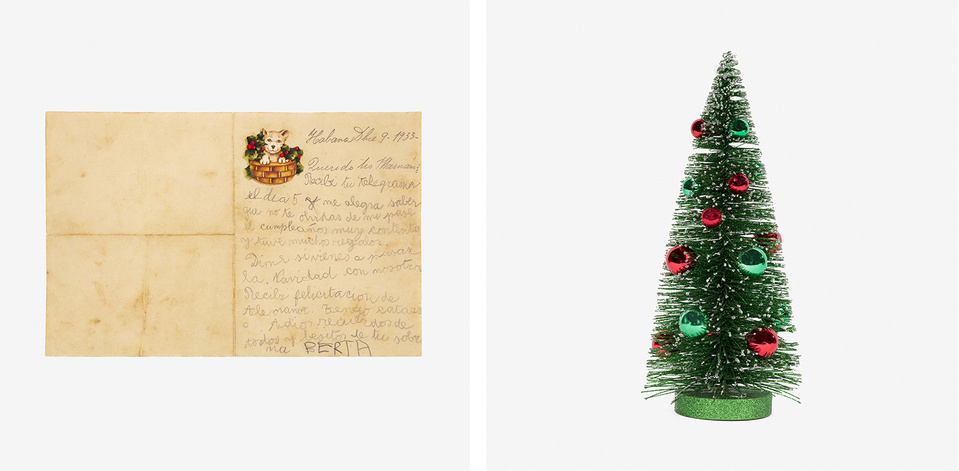 Habana Dbre 9-1933-
Querido tio
Recibi tu telegrama
el dia 5 y me alegra saber
que no te olvidas de mi pasé
el cumpleaños muy contenta
y tuve muchos regalos.
Dime si vienes a pasar
la Navidad con nosotros
Recibe felicitacion de
Adios recuerdos de
todos y besitos de tu sobri
na BERTA